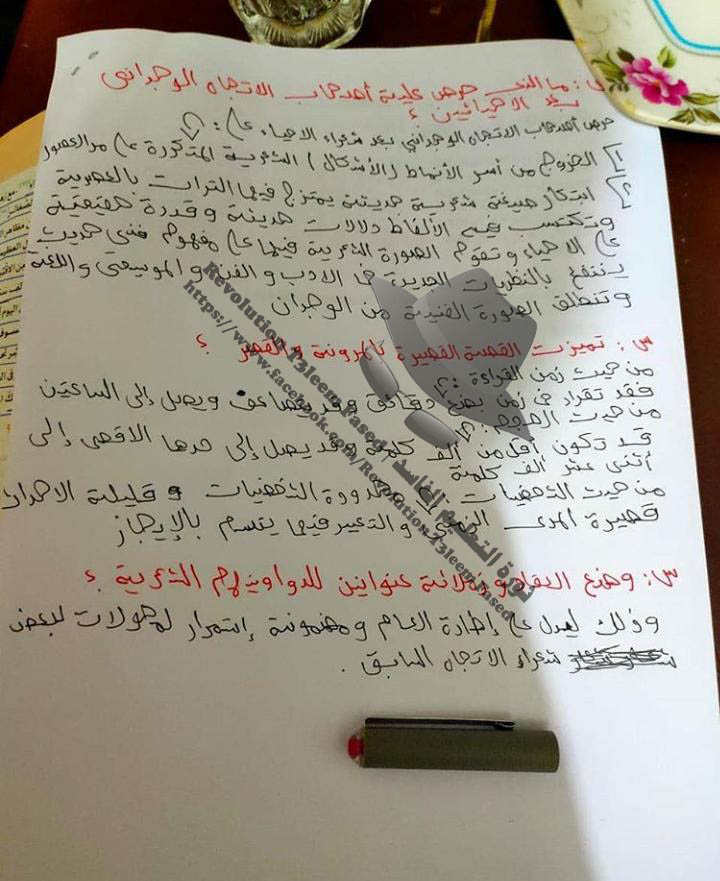 س: ما الذى حرص عليه أصحاب الاتجاه الوجدانى
بعد الاحيائيين ؟
حرص أصحاب الاتجاه الوجدانى بعد شعراء الاحياء على :
1 الخروج من أسر الأنماط (الأشكال) الشعرية المتكررة على مر العصور
2 ابتكار صيغة شعرية حديثة يمتزج فيها التراث بالعصرية
وتكتسب فيه الألفاظ دلالات حديثة وقدرة حقيقية
على الاحياء وتقوم الصورة الشعرية فيها على مفهوم فنى حديث
ينتفع بالنظريات الجديدة فى الادب والفن والموسيقى واللغة
وتنطلق الصورة الفنية من الوجدان
س: تميزت القصة القصيرة بالمرونة والقصر ؟
من حيث زمن القراءة :
فقد تقرأ فى زمن بضع دقائق وقد يضاعف ويصل إلى الساعتين
من حيث الحجم :
قد تكون أقل من ألف كلمة وقد يصل إلى حدها الاقصى إلى
أثنى عشر ألف كلمة
من حيث الشخصيات : محدودة الشخصيات وقليلة الاحداث
قصيرة المدى الزمنى والتعبير فيها يتسم بالإيجاز
س: وضع العقاد ثلاثة عنوانين للدواوينهم الشعرية ؟
وذلك ليدل على إطارة العام ومضمونة إستمرار لمحولات لبعض
شعراء الاتجاه السابق .
Revolution T3leem Fased
ثورة التعليم الفاسد
https://www.facebook.com/Revolution.T3leem.Fased